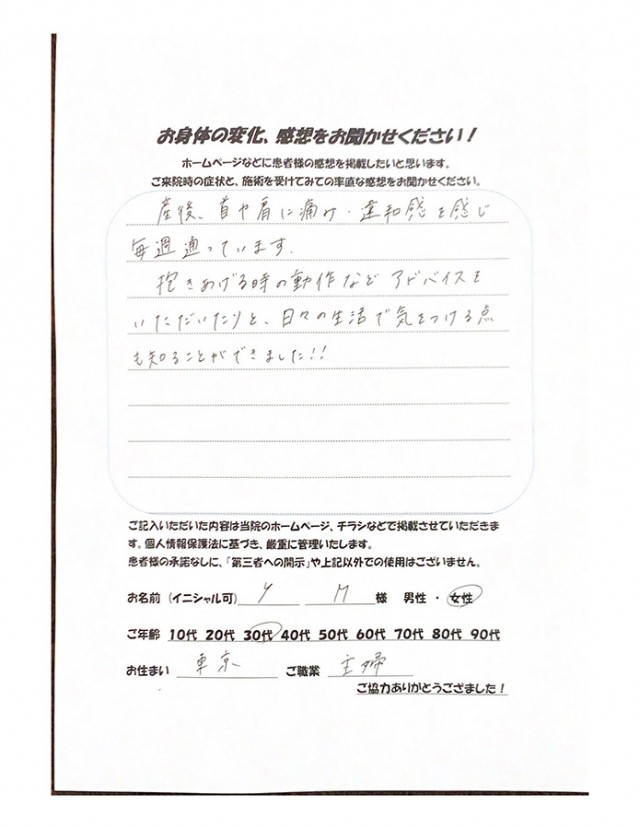 お身体の変化、感想をお聞かせください！
ホームページなどに患者様の感想を掲載したいと思います。
ご来院時の症状と、施術を受けてみての率直な感想をお聞かせください。
産後、首や肩に痛み・違和感を感じ
毎週通っています。
抱きあげる時の動作など アドバイスを
いただいたりと、日々の生活で気をつける点
も知ることができました!!
ご記入いただいた内容は当院のホームページ、チラシなどで掲載させていただきま
す。個人情報保護法に基づき、厳重に管理いたします。
患者様の承諾なしに、「第三者への開示」や上記以外での使用はございません。
お名前（イニシャル可） Y M 様 男性 ・ 女性
ご年齢 10代 20代 30代 40代 50代 60代 70代 80代 90代
お住まい 東京 ご職業 主婦
ご協力ありがとうござました！